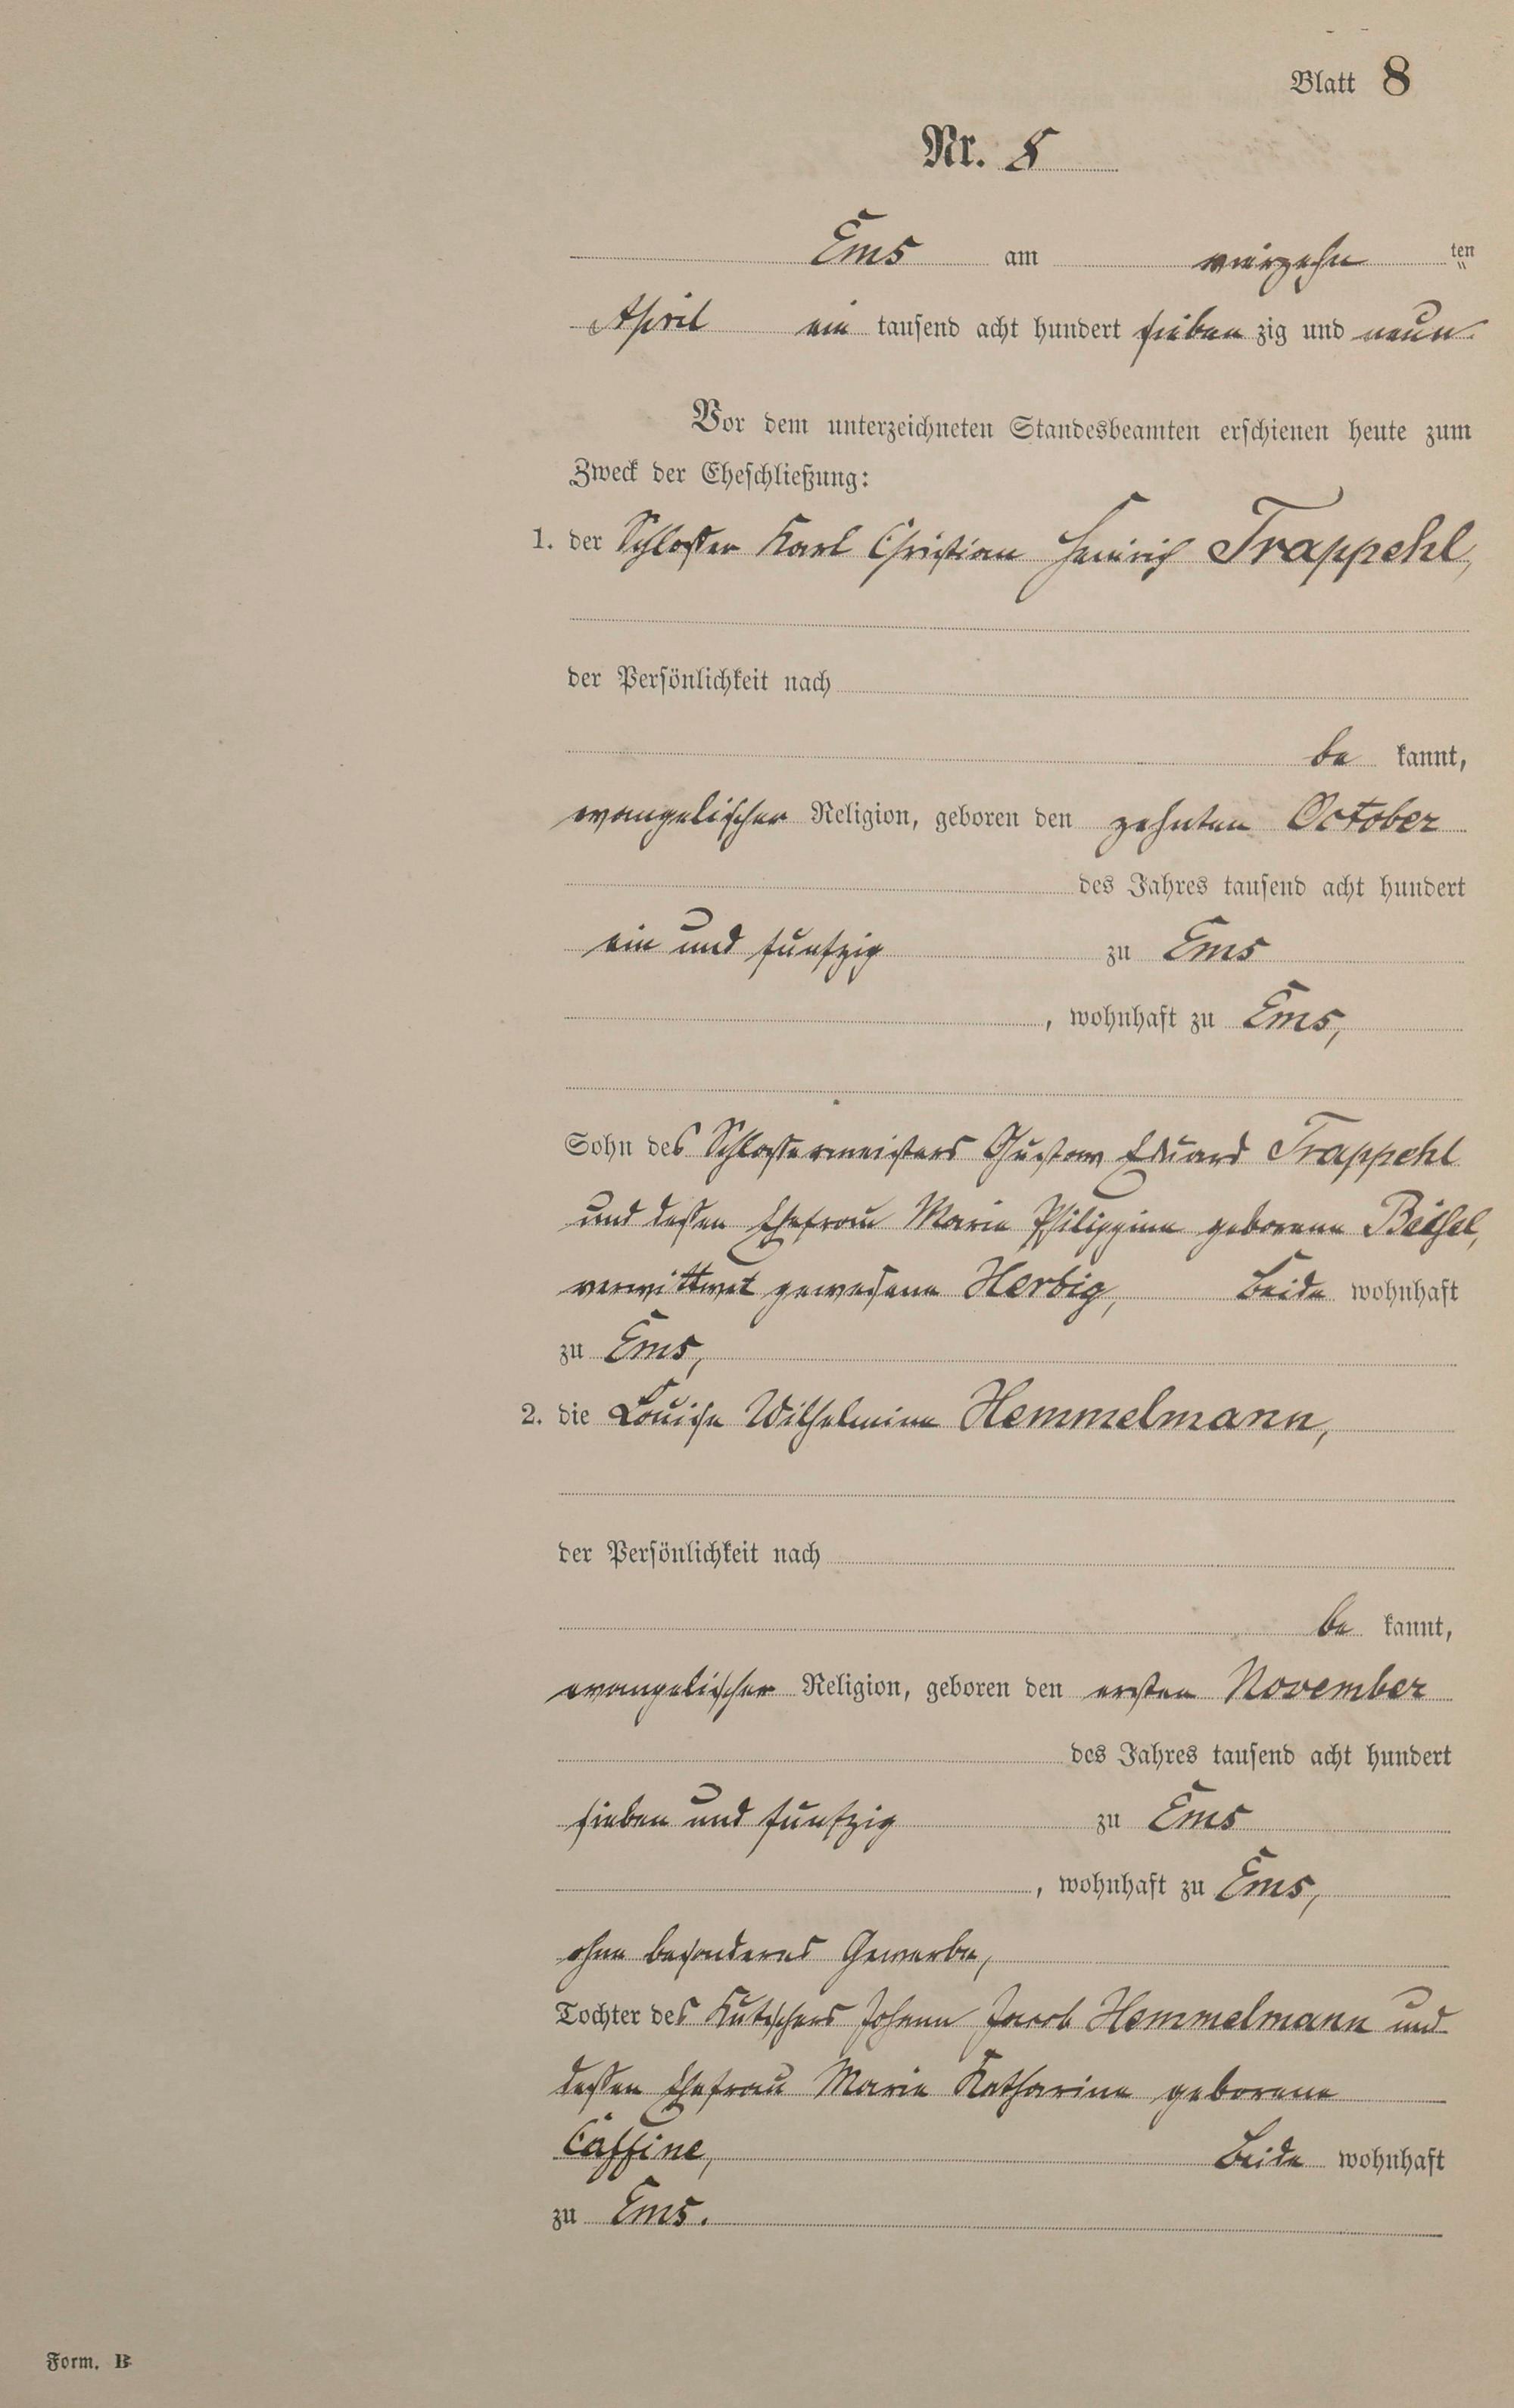 Blatt 8
Nr. 8
Ems am vierzehn ten
April ein tausend acht hundert sieben zig und neun.
Vor dem unterzeichneten Standesbeamten erschienen heute zum
Zweck der Eheschließung:
1. der Schlosser Karl Christian Heinrich Trappehl,
der Persönlichkeit nach
be kannt,
evangelischer Religion, geboren den zehnten October
des Jahres tausend acht hundert
ein und fünfzig zu Ems
, wohnhaft zu Ems,
Sohn des Schlossermeisters Gustav Eduard Trappehl
und dessen Ehefrau Marie Philippine geborene
verwittwet gewesene Herbig, Beide wohnhaft
zu Ems,
2. die Louise Wilhelmine Hemmelmann,
der Persönlichkeit nach
be kannt,
evangelischer Religion, geboren den ersten November
des Jahres tausend acht hundert
sieben und fünfzig zu Ems
, wohnhaft zu Ems,
ohne besonderes Gewerbe,
Tochter des Kutschers Johann Jacob Hemmelmann und
dessen Ehefrau Marie Katharine geborene
Beide wohnhaft
zu Ems.
Form. B